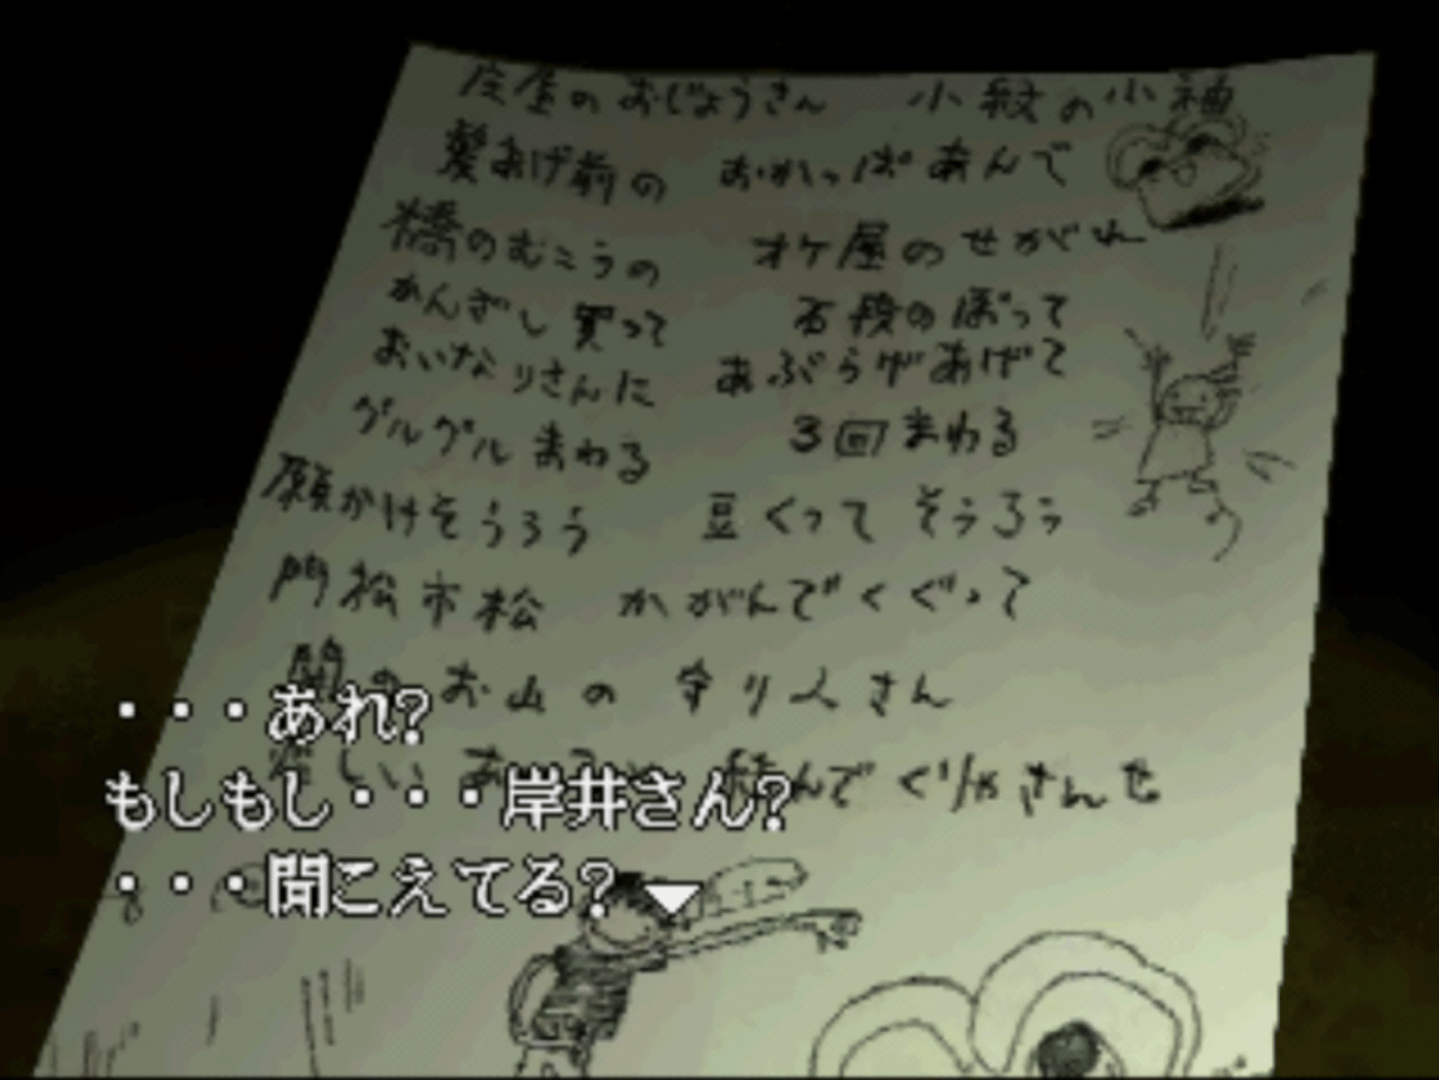 庄屋のおじょうさん 小紋の小袖
髪あげ前の おかっぱあんで
橋のむこうの オケ屋のせがれ
かんざし買って 石段のぼって
おいなりさんに あぶらげあげて
グルグルまわる 3回まわる
願かけそうろう 豆くってそうろう
門松市松 かがんでくぐって
お山の 守り人さん
んで ぐりゃさんせ
・・・あれ?
もしもし・・・岸井さん?
・・・聞こえてる?